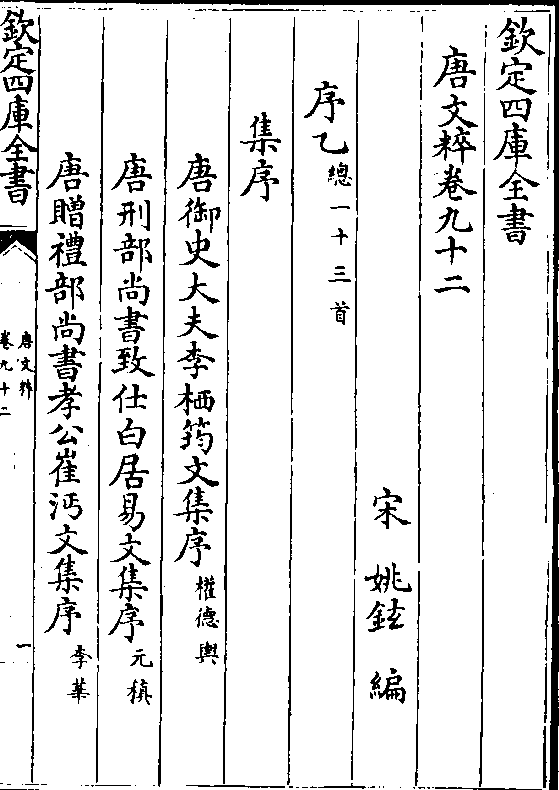 欽定四庫全書
唐文粹卷九十二
宋　姚鉉　編
序乙總一十三首
集序
唐御史大夫李栖筠文集序權德輿
唐刑部尚書致仕白居易文集序元稹
唐贈禮部尚書孝公崔沔文集序李華
欽定四庫全書
唐文粹
卷九十二
一